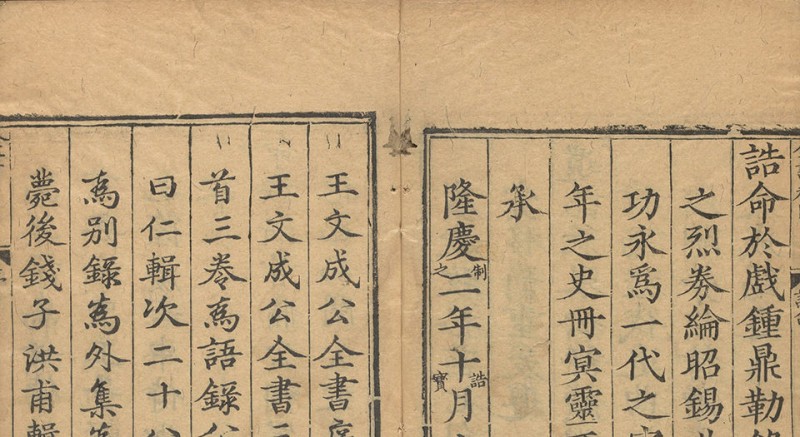 誥命於戲鍾鼎勒
之烈券綸昭錫
功永爲一代之
年之史冊冥靈
承
隆慶二年十月
制誥
之寶
王文成公全書序
王文成公全書二
首三卷爲語錄公
曰仁輯次二十八
爲別錄爲外集爲
薨後錢子洪甫輯